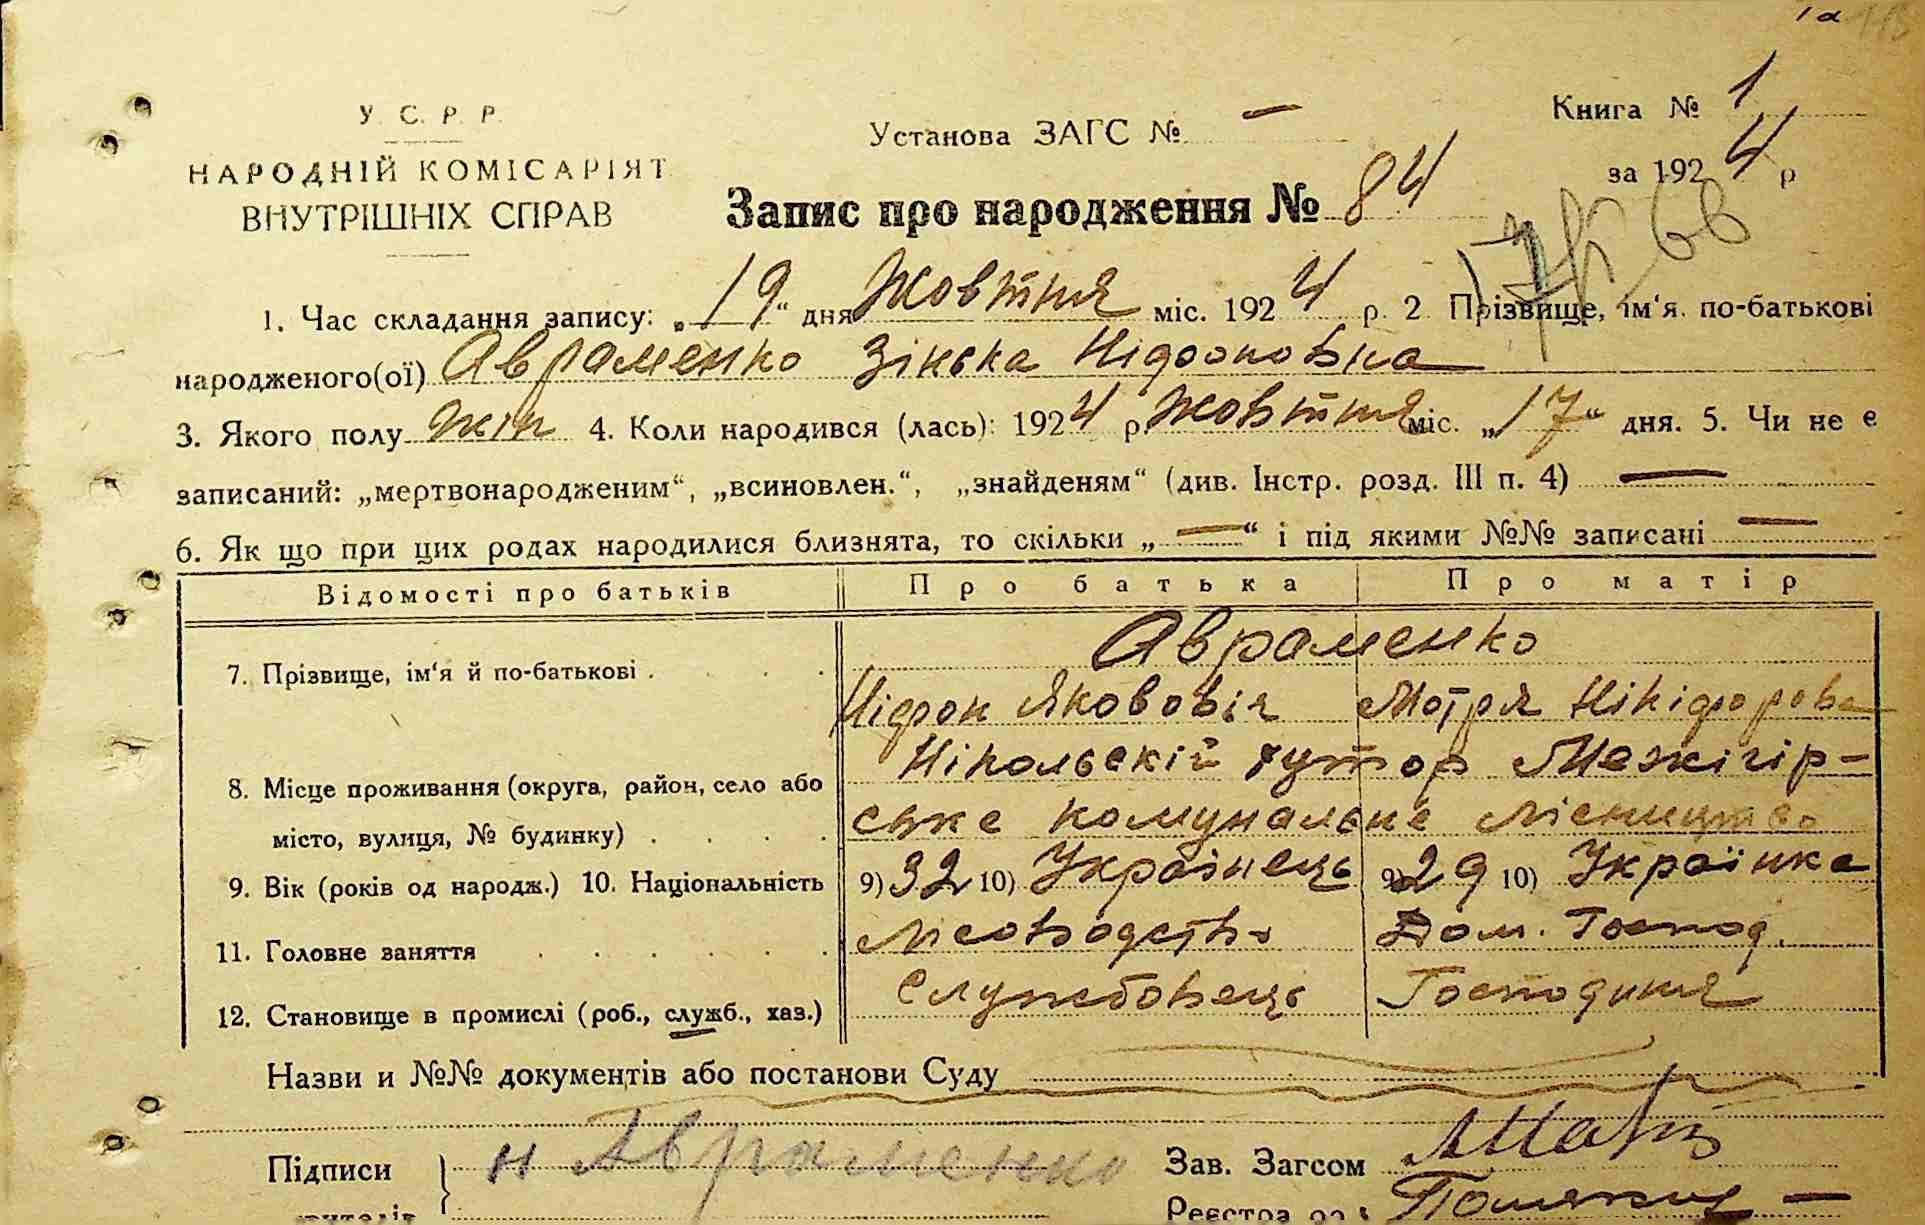 1а 113
У. С. Р. Р.
НАРОДНІЙ КОМІСАРІЯТ
ВНУТРІШНІХ СПРАВ
Установа ЗАГС № —
Книга № 1
за 1924 р
Запис про народження № 84
1. Час складання запису: „19“ дня Жовтня міс. 1924 р. 2 Прізвище, ім‘я. по-батькові
народженого(ої) Авраменко Зінька Ніфоновна
3. Якого полу жін 4. Коли народився (лась): 1924 р. Жовтня міс. „17“ дня. 5. Чи не є
записаний: „мертвонародженим“, „всиновлен.“, „знайденям“ (див. Інстр. розд. III п. 4) —
6. Як що при цих родах народилися близнята, то скільки „—“ і під якими №№ записані —
Відомості про батьків Про батька Про матір
Авраменко
7. Прізвище, ім‘я й по-батькові . . . .
Ніфон Яковович Мотря Нікіфорова
Нікольскій хутор Межігір-
8. Місце проживання (округа, район, село або
місто, вулиця, № будинку) . . . . ське комунальне лісництво
9. Вік (років од народж.) 10. Національність 9) 32 10) Українець 9) 29 10) Українка
11. Головне заняття . . . . . . Лісоводство Дом. Господ.
12. Становище в промислі (роб., служб., хаз.) Службовець Господиня
Назви и №№ документів або постанови Суду
Підписи } Н Авраменко Зав. Загсом